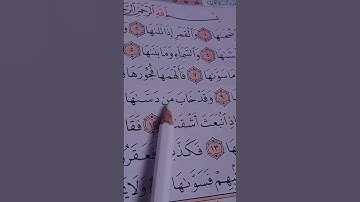 بِسْمِ اللَّهِ الرَّحْمَٰنِ الرَّ
ضُحَىٰهَا ١ وَالْقَمَرِ إِذَا تَلَىٰهَا ٢
وَالسَّمَاءِ وَمَا بَنَىٰهَا ٥
سَوَّىٰهَا ٧ فَأَلْهَمَهَا فُجُورَهَا
وَقَدْ خَابَ مَن دَسَّىٰهَا
إِذِ انۢبَعَثَ أَشْقَىٰهَا ١٢ فَقَا
هَا ١٣ فَكَذَّبُ فَعَقَرُ
هِمْ فَسَوَّىٰهَا وَلَا يَ